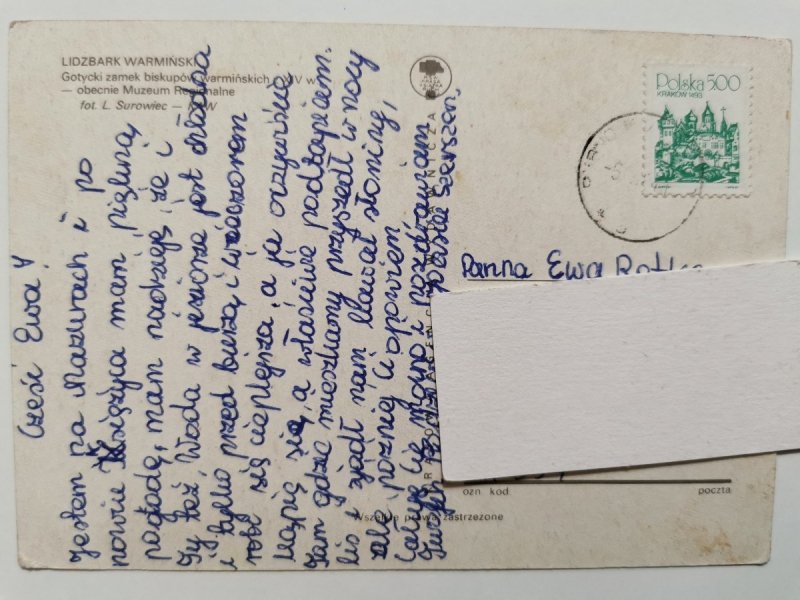 LIDZBARK WARMIŃSKI
Gotycki zamek biskupów warmińskich XIV w.
— obecnie Muzeum Regionalne
fot. L. Surowiec — KAW
Polska 500
KRAKÓW 1493
Cześć Ewa!
Jestem na Mazurach i po
nowiu Księżyca mam piękną
pogodę, mam nadzieję, że i
Ty też. Woda w jeziorze jest chłodna
i tylko przed burzą i wieczorem
robi się cieplejsza, a ja oczywiście
kąpię się, a właściwie podtapiam.
Tam gdzie mieszkamy przyszedł w nocy
lis i zjadł nam kawał słoniny,
ale później Ci opowiem.
Całuję Cię mocno i pozdrawiam
Szerszeń
Panna Ewa
KRAJOWA AGENCJA WYDAWNICZA
ozn. kod
poczta
Wszelkie prawa zastrzeżone